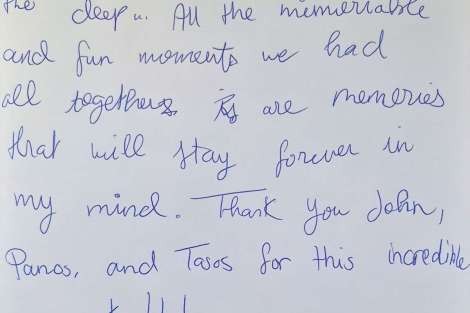 the deep... All the memoriable
and fun moments we had
all together, are memeries
that will stay forever in
my mind. Thank you John,
Panos, and Tasos for this incredible